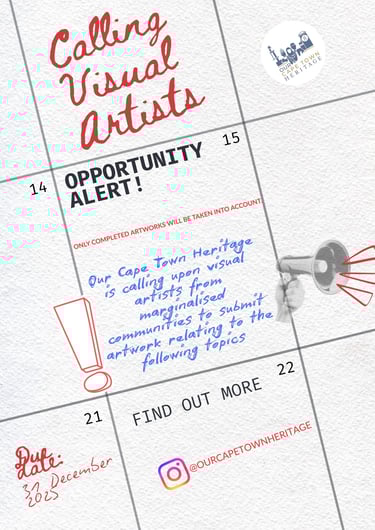 Calling
Visual
Artists
OUR
CAPE TOWN
HERITAGE
14
OPPORTUNITY
ALERT!
15
ONLY COMPLETED ARTWORKS WILL BE TAKEN INTO ACCOUNT!
Our Cape Town Heritage
is calling upon visual
artists from
marginalised
communities to submit
artwork relating to the
following topics
!
21
Due
date:
31 December
2025
22
FIND OUT MORE
@OURCAPETOWNHERITAGE